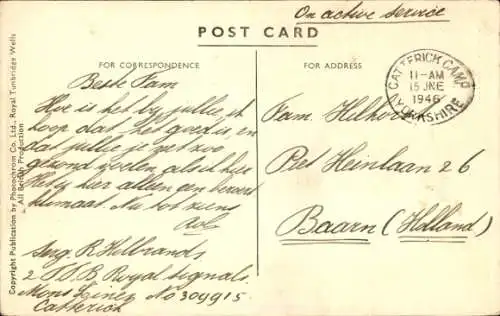 On active service
POST CARD
FOR CORRESPONDENCE
FOR ADDRESS
Beste Fam
Hoe is het bij jullie, ik
hoop dat het goed is, en
dat jullie je net zoo
gezond voelen als ik hier
Het is hier alleen een beroerd
klimaat Nu tot ziens
Rob
Serg. R Hilbrands
2 T.T.B Royal signals.
Mons Lines No 309915
Catterick
CATTERICK CAMP
11-AM
15 JNE
1946
YORKSHIRE
Fam.
Piet Heinlaan 26
Baarn (Holland)
Copyright Publication by Photochrom Co. Ltd., Royal Tunbridge Wells
All British Production